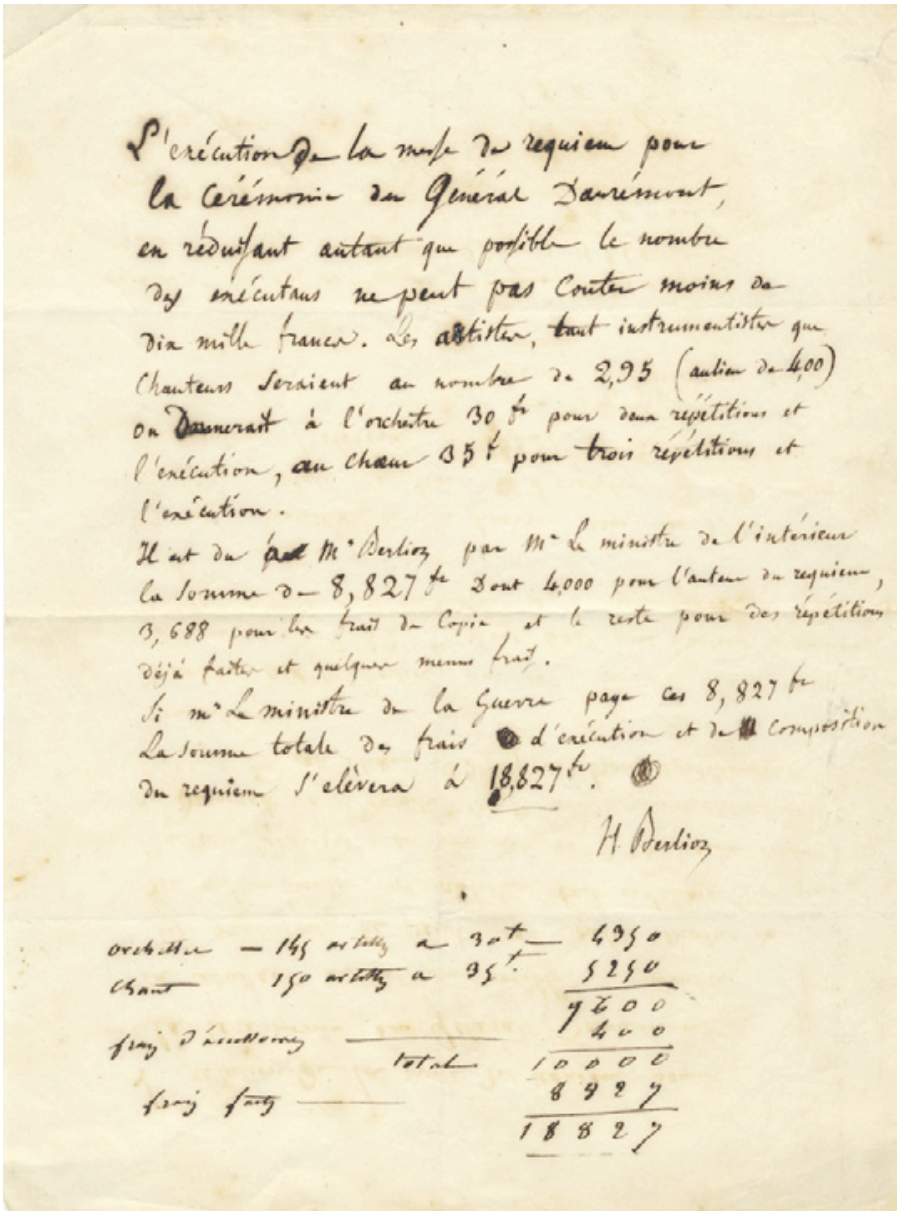 L'exécution de la messe de requiem pour
la Cérémonie du Général Danrémont,
en réduisant autant que possible le nombre
des exécutans ne peut pas Couter moins de
dix mille francs. Les artistes, tant instrumentistes que
Chanteurs seraient au nombre de 2,95 (aulieu de 4,00)
on Donnerait à l'orchestre 30 fr pour deux répétitions et
l'exécution, au Chœur 35 f pour trois répétitions et
l'exécution.
Il est du à Mr Berlioz par Mr Le ministre de l'intérieur
la Somme de 8,827 fr Dont 4,000 pour l'auteur du requiem,
3,688 pour les frais de Copie et le reste pour des répétitions
déjà faites et quelques menus frais.
Si mr Le ministre de la Guerre paye ces 8,827 fr
La somme totale des frais d'exécution et de composition
du requiem s'elèvera à 18,827 fr.
H. Berlioz
orchestre — 145 artistes a 30 f — 4350
chant 150 artistes a 35 f. 5250
9600
frais 400
total 10000
frais faits 8827
18827